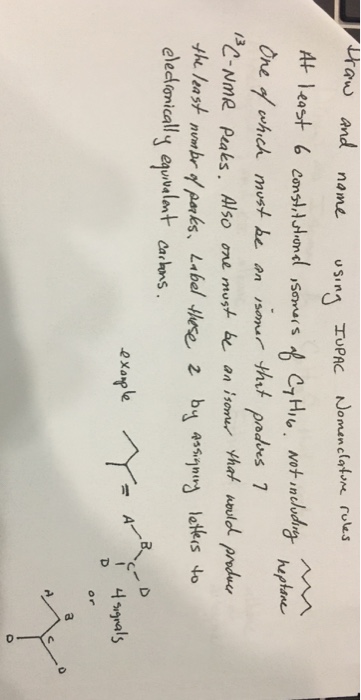 Draw and name using IUPAC Nomenclature rules
At least 6 constitutional isomers of C7H16. Not including heptane
One of which must be an isomer that produces 7
13C-NMR Peaks. Also one must be an isomer that would produce
the least number of peaks. Label these 2 by assigning letters to
electronically equivalent carbons.
example = A B C D D 4 signals
or
A B C D D